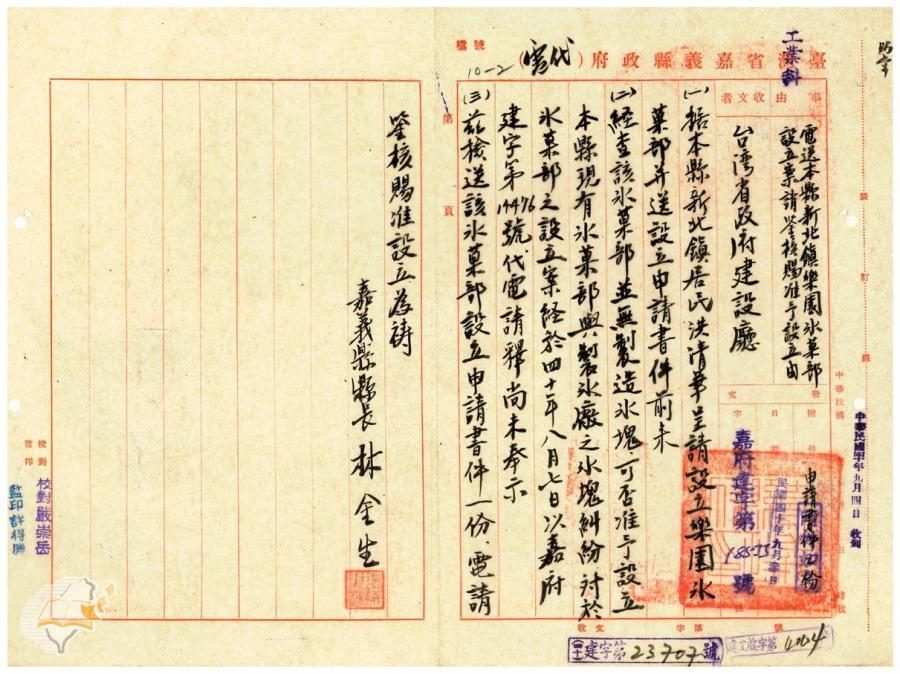 工業科
檔號
10-2
臺灣省嘉義縣政府（代電）
事由
收文者
電送本縣新北鎮樂園冰菓部
設立案請鑒核賜准予設立由
台湾省政府建設廳
附件
申請書件四份
發文
字
日期
嘉府建字第18533號
民國四十年九月 日
中華民國
中華民國四十年九月四日 收到
裝
訂
線
(一)據本縣新北鎮居民洪清華呈請設立樂園冰
菓部并送設立申請書件前來
(二)經查該冰菓部並無製造冰塊，可否准予設立
本縣現有冰菓部與製冰廠之冰塊糾紛対於
冰菓部之設立案経於四十年八月七日以嘉府
建字第14476號代電請釋尚未奉示
(三)茲檢送該冰菓部設立申請書件一份、電請
第 頁
鑒核賜准設立為禱
嘉義縣縣長 林金生
校對
監印
校對嚴崇岳
監印 許得勝
收文 字第 號
建字第23707號
建工收字第4064